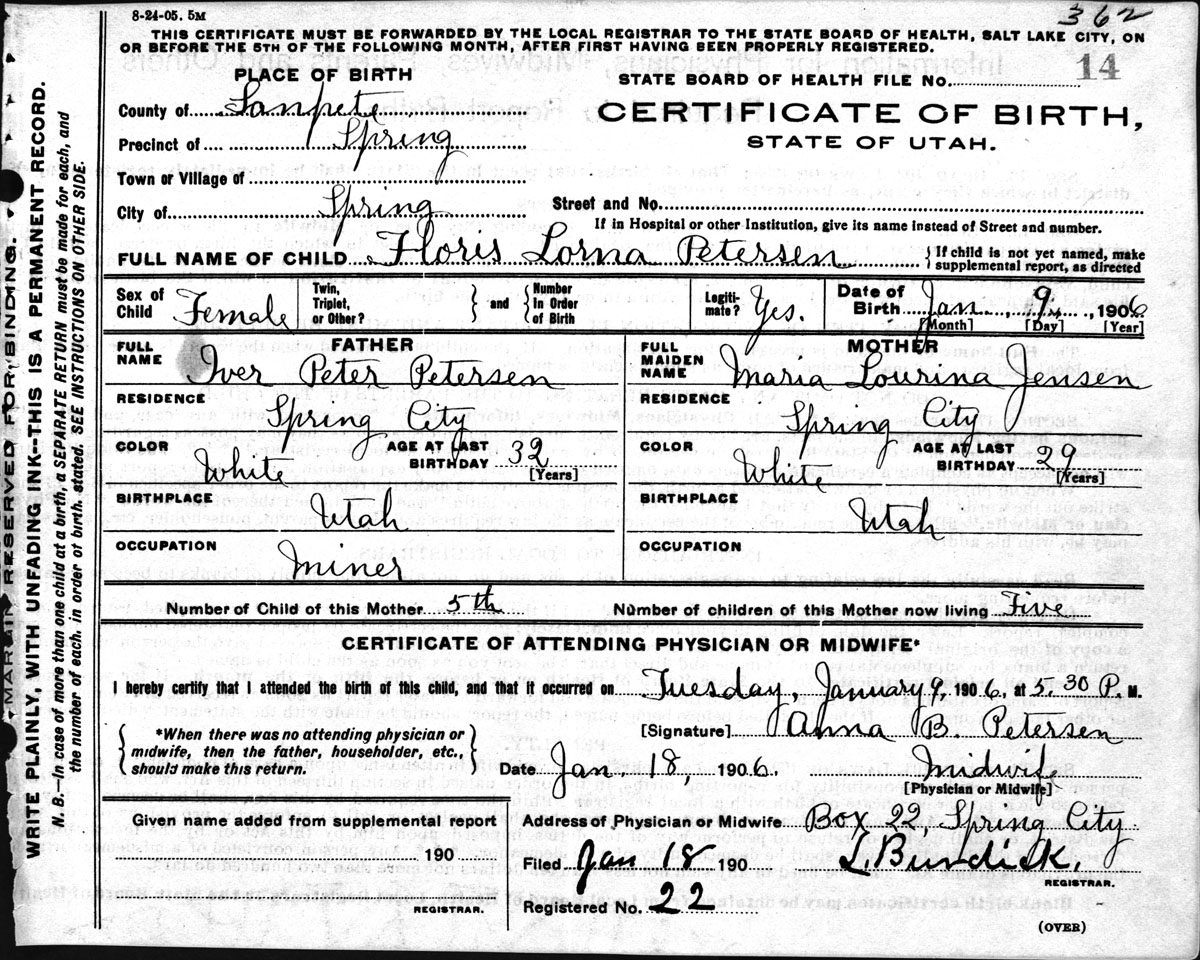 8-24-05. 5M
362
THIS CERTIFICATE MUST BE FORWARDED BY THE LOCAL REGISTRAR TO THE STATE BOARD OF HEALTH, SALT LAKE CITY, ON
OR BEFORE THE 5TH OF THE FOLLOWING MONTH, AFTER FIRST HAVING BEEN PROPERLY REGISTERED.
PLACE OF BIRTH
STATE BOARD OF HEALTH FILE No. 14
County of Sanpete
CERTIFICATE OF BIRTH,
Precinct of Spring
STATE OF UTAH.
Town or Village of
City of Spring
Street and No.
If in Hospital or other Institution, give its name instead of Street and number.
FULL NAME OF CHILD Floris Lorna Petersen
{If child is not yet named, make
supplemental report, as directed
Sex of
Child Female
Twin,
Triplet,
or Other?
} and {
Number
In Order
of Birth
Legiti-
mate? Yes.
Date of
Birth Jan. 9, 1906
[Month] [Day] [Year]
FATHER
FULL
NAME Iver Peter Petersen
RESIDENCE
Spring City
COLOR White
AGE AT LAST
BIRTHDAY 32
[Years]
BIRTHPLACE
Utah
OCCUPATION
Miner
MOTHER
FULL
MAIDEN
NAME Maria Lourina Jensen
RESIDENCE
Spring City
COLOR White
AGE AT LAST
BIRTHDAY 29
[Years]
BIRTHPLACE
Utah
OCCUPATION
Number of Child of this Mother 5th Number of children of this Mother now living Five
CERTIFICATE OF ATTENDING PHYSICIAN OR MIDWIFE*
I hereby certify that I attended the birth of this child, and that it occurred on Tuesday, January 9, 1906, at 5.30 P. M.
{*When there was no attending physician or
midwife, then the father, householder, etc.,
should make this return.}
[Signature] Anna B. Petersen
Date Jan. 18, 1906. Midwife
[Physician or Midwife]
Given name added from supplemental report
190
REGISTRAR.
Address of Physician or Midwife Box 22, Spring City.
Filed Jan 18 190 L. Burdick.
REGISTRAR.
Registered No. 22
(OVER)
MARGIN RESERVED FOR BINDING.
WRITE PLAINLY, WITH UNFADING INK--THIS IS A PERMANENT RECORD.
N. B.—In case of more than one child at a birth, a SEPARATE RETURN must be made for each, and
the number of each, in order of birth, stated. SEE INSTRUCTIONS ON OTHER SIDE.